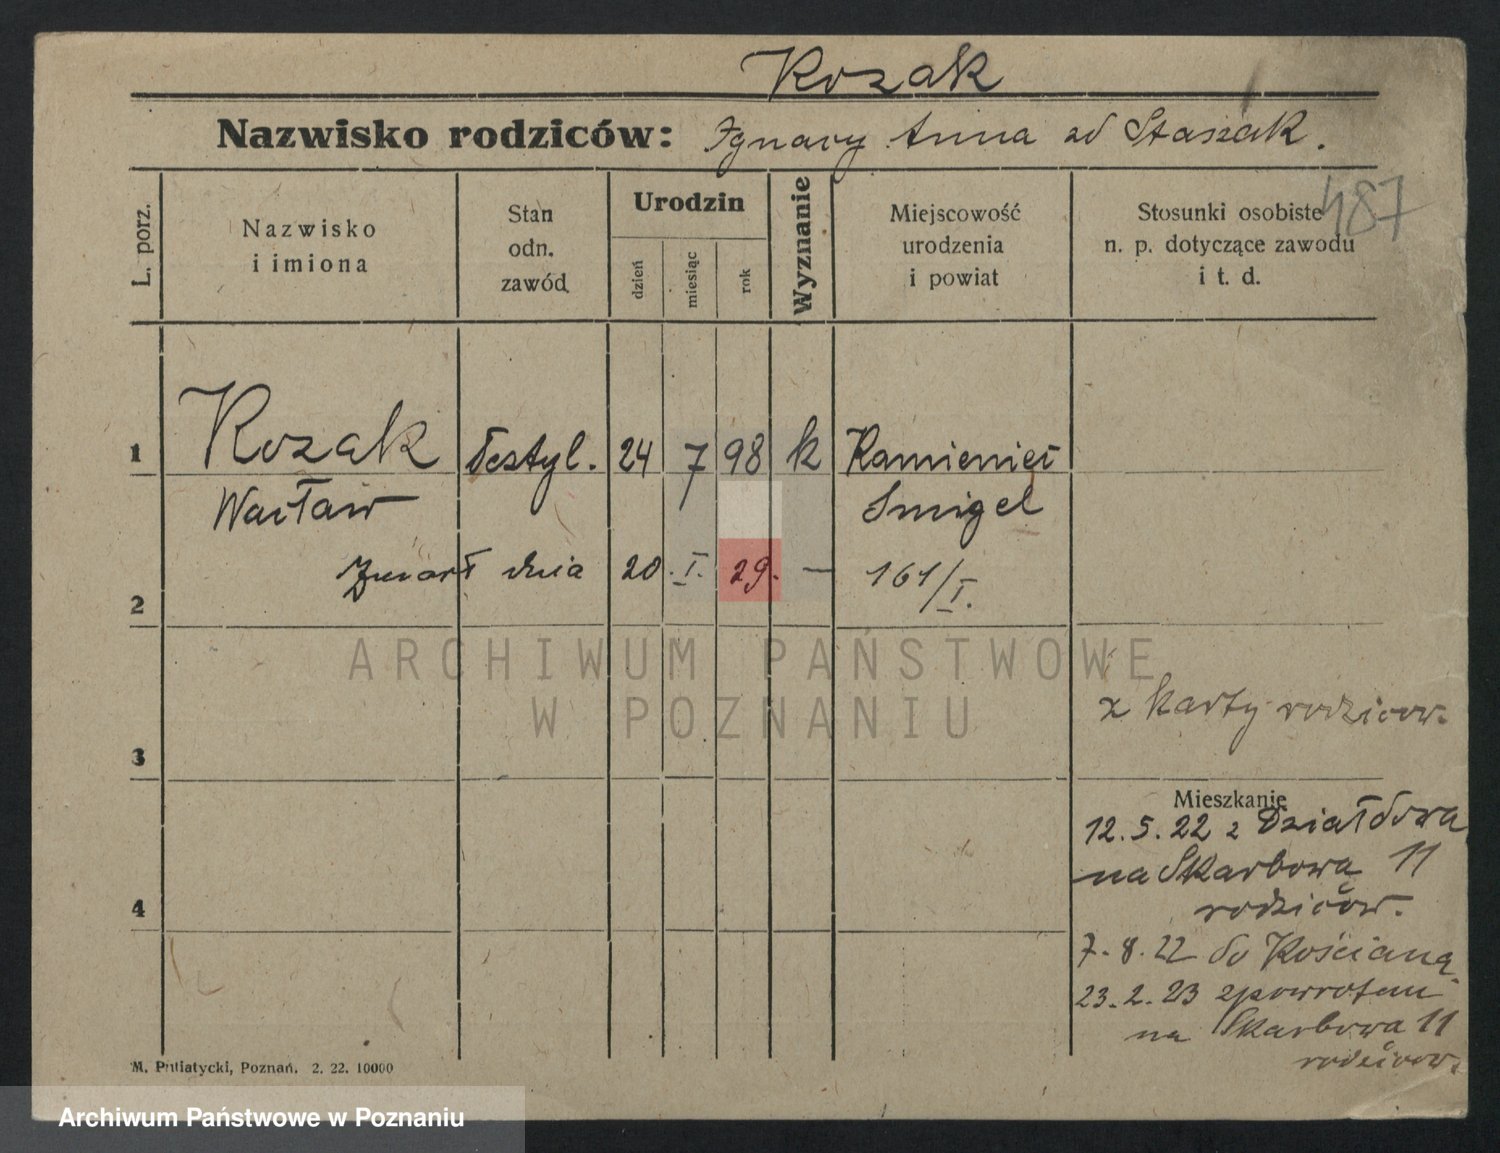 Kozak
Nazwisko rodziców: Ignacy Anna zd Staszak.
487
L. porz.
Nazwisko
i imiona
Stan
odn.
zawód
Urodzin
dzień
miesiąc
rok
Wyznanie
Miejscowość
urodzenia
i powiat
Stosunki osobiste
n. p. dotyczące zawodu
i t. d.
1 Kozak Destyl. 24 7 98 k Kamieniec
Wacław Smigel
Zmarł dnia 20. I. 29. — 161/I.
2
ARCHIWUM PAŃSTWOWE
W POZNANIU
z karty rodziców.
3
Mieszkanie
12.5.22 z Działdowa
na Skarbową 11
rodziców.
4
7.8.22 do Kościana
23.2.23 zpowrotem
na Skarbowa 11
rodziców.
M. Putiatycki, Poznań. 2. 22. 10000
Archiwum Państwowe w Poznaniu